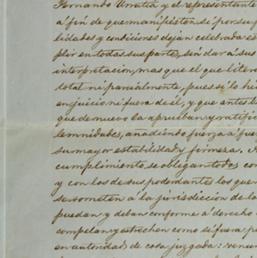 Fernando Urrutia y el representante
á fin de que manifiesten si por su p
lidades y condiciones dejan celebrada c
plir en todas sus partes, sin dar á sus
interpretacion, mas que el que liter
total ni parcialmente, pues si lo hi
en juicio ni fuera de él, y que antes b
que de nuevo la aprueban y ratific
lemnidades, añadiendo fuerza á fue
su mayor estabilidad y firmeza. A
cumplimiento, se obligan todos, con
y con los de sus poderdantes los que
se someten á la jurisdiccion de la
puedan y deban conforme á derecho
compelan y estrechen como si fuera p
en autoridad de cosa juzgada: renun